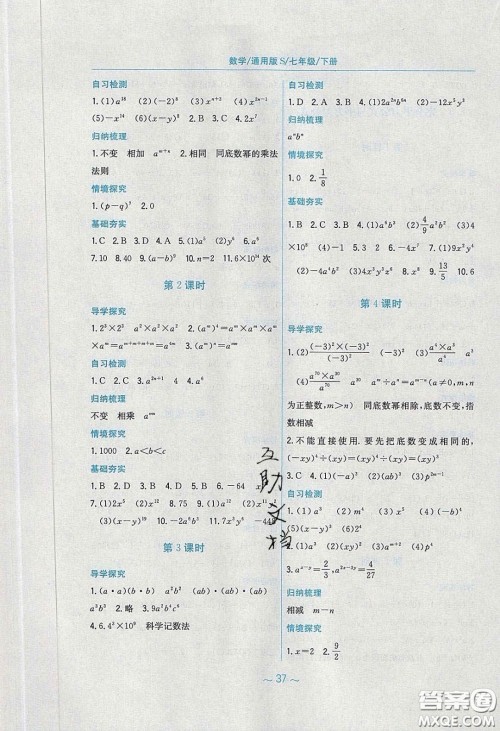 数学/通用版 S/七年级/下册
自习检测
1.(1)a¹⁶ (2)(-2)⁸ (3)xⁿ⁺² (4)x²ⁿ⁻¹
(5)-x¹⁴ (6)(x-y)⁵ 2.B 3.C 4.2x⁷
归纳梳理
1.不变 相加 aᵐ⁺ⁿ 2.相同 同底数幂的乘法
法则
情境探究
1.(p-q)⁵ 2.0
基础夯实
1.C 2.B 3.D 4.A 5.(1)a⁵ (2)y⁶ 6.a⁹
7.10 8.40 9.(a-b)⁹ 10.n=2 11.6×10¹⁴ 次
第 2 课时
导学探究
1.2³×2³ a²×a²×a² 2.(aᵐ)⁴=aᵐ×aᵐ×aᵐ
×aᵐ=aᵐ⁺ᵐ⁺ᵐ⁺ᵐ=a⁴ᵐ
自习检测
1.C 2.C 3.a²ⁿ⁺¹ 4 4.a⁶
归纳梳理
不变 相乘 aᵐⁿ
情境探究
1.1000 2.a<b<c
基础夯实
1.C 2.D 3.A 4.B 5.B 6.-64
7.(1)2x⁵ (2)x¹² 8.75 9.(1)-x⁷
(3)(x-y)ᵐ 10.-2a⁶b³ 11.7x⁶
第 3 课时
导学探究
1.(a·a)(b·b) a²b² (ab)·(ab)·(ab)
a³b³ 2.略 3.9a²b⁴c⁶
4.6.4³×10⁹ 科学记数法
自习检测
1.D 2.A 3.A 4.B 5.(1)2a²ⁿbⁿ (2)-12x³y³
归纳梳理
aⁿbⁿ
情境探究
1.0 2.1/8
基础夯实
1.B 2.D 3.B 4.(1)a⁶b³ (2)4/9a²b² (3)4
×10⁸ (4)-y³ 5.2 6.-4x⁷ 7.(1)9x²y⁴
(2)-4a⁴b² (3)4x²y²z⁸ 8.C 9.13/5 10.6
第 4 课时
导学探究
1.(2)(-3)²×(-3)²/(-3)² (3)a⁴×a³/a⁴
(4)a⁷⁰×a³⁰/a⁷⁰ a³⁰ aᵐ÷aⁿ=aᵐ⁻ⁿ(a≠0,m,n
为正整数,m>n) 同底数幂相除,底数不变,指
数相减
2.不能直接使用. 要先把底数变成相同的,
(-xy)⁴÷(xy)=(xy)⁴÷(xy)=(xy)³
3.C 4.(1)(x-y)⁵ (2)-ab (3)p²ᵐ⁻¹
自习检测
1.(1)a³ (2)(xy)² (3)aⁿ⁺² (4)(xy)³
(5)(x-y)³ (6)2⁴
2.(1)a³ (2)(xy)² (3)aⁿ⁺² (4)(xy)³
3.aˣ⁻ʸ=2/3,a²ˣ⁻³ʸ=4/27
归纳梳理
相减 m-n
情境探究
1.x=2 2.9/2
~ 37 ~
互助文档
答案圈
MXQE.COM